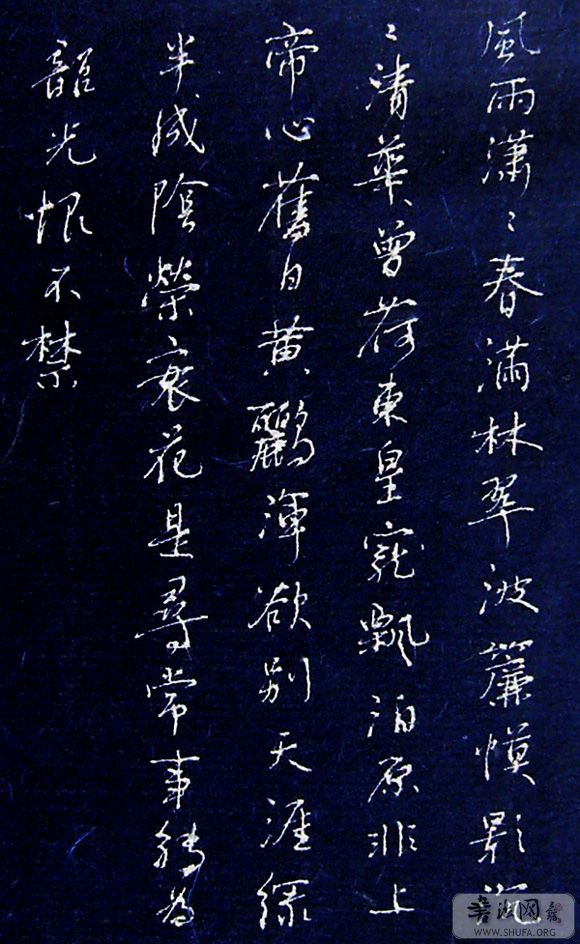 風雨瀟〻春滿林翠波簾幙影沉
〻清華曾荷東皇寵飄泊原非上
帝心舊日黃鸝渾欲別天涯綠
半成陰榮衰花是尋常事轉為
韶光恨不禁
书法网
WWW.SHUFA.ORG